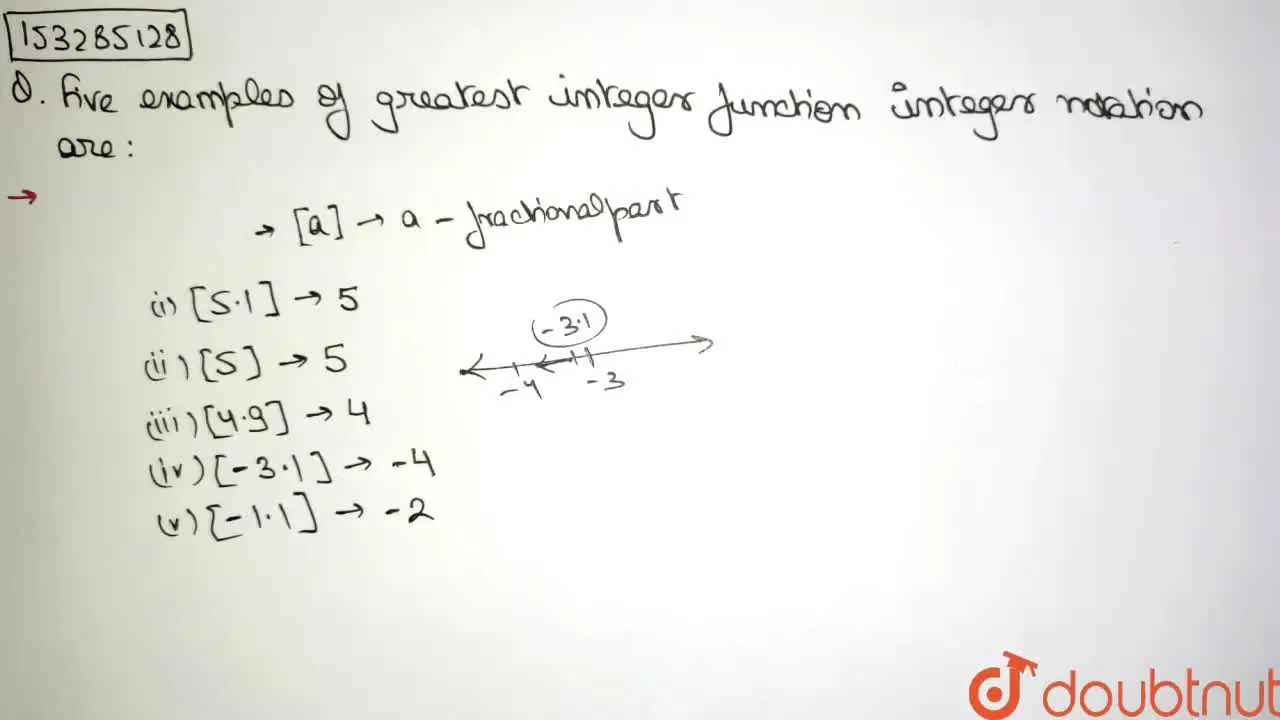 153285128
Q. Five examples of greatest integer function integer notation
are:
→
→ [a] → a - fractional part
(i) [5.1] → 5
(ii) [5] → 5
(iii) [4.9] → 4
(iv) [-3.1] → -4
(v) [-1.1] → -2
-3.1
-4 -3
doubtnut